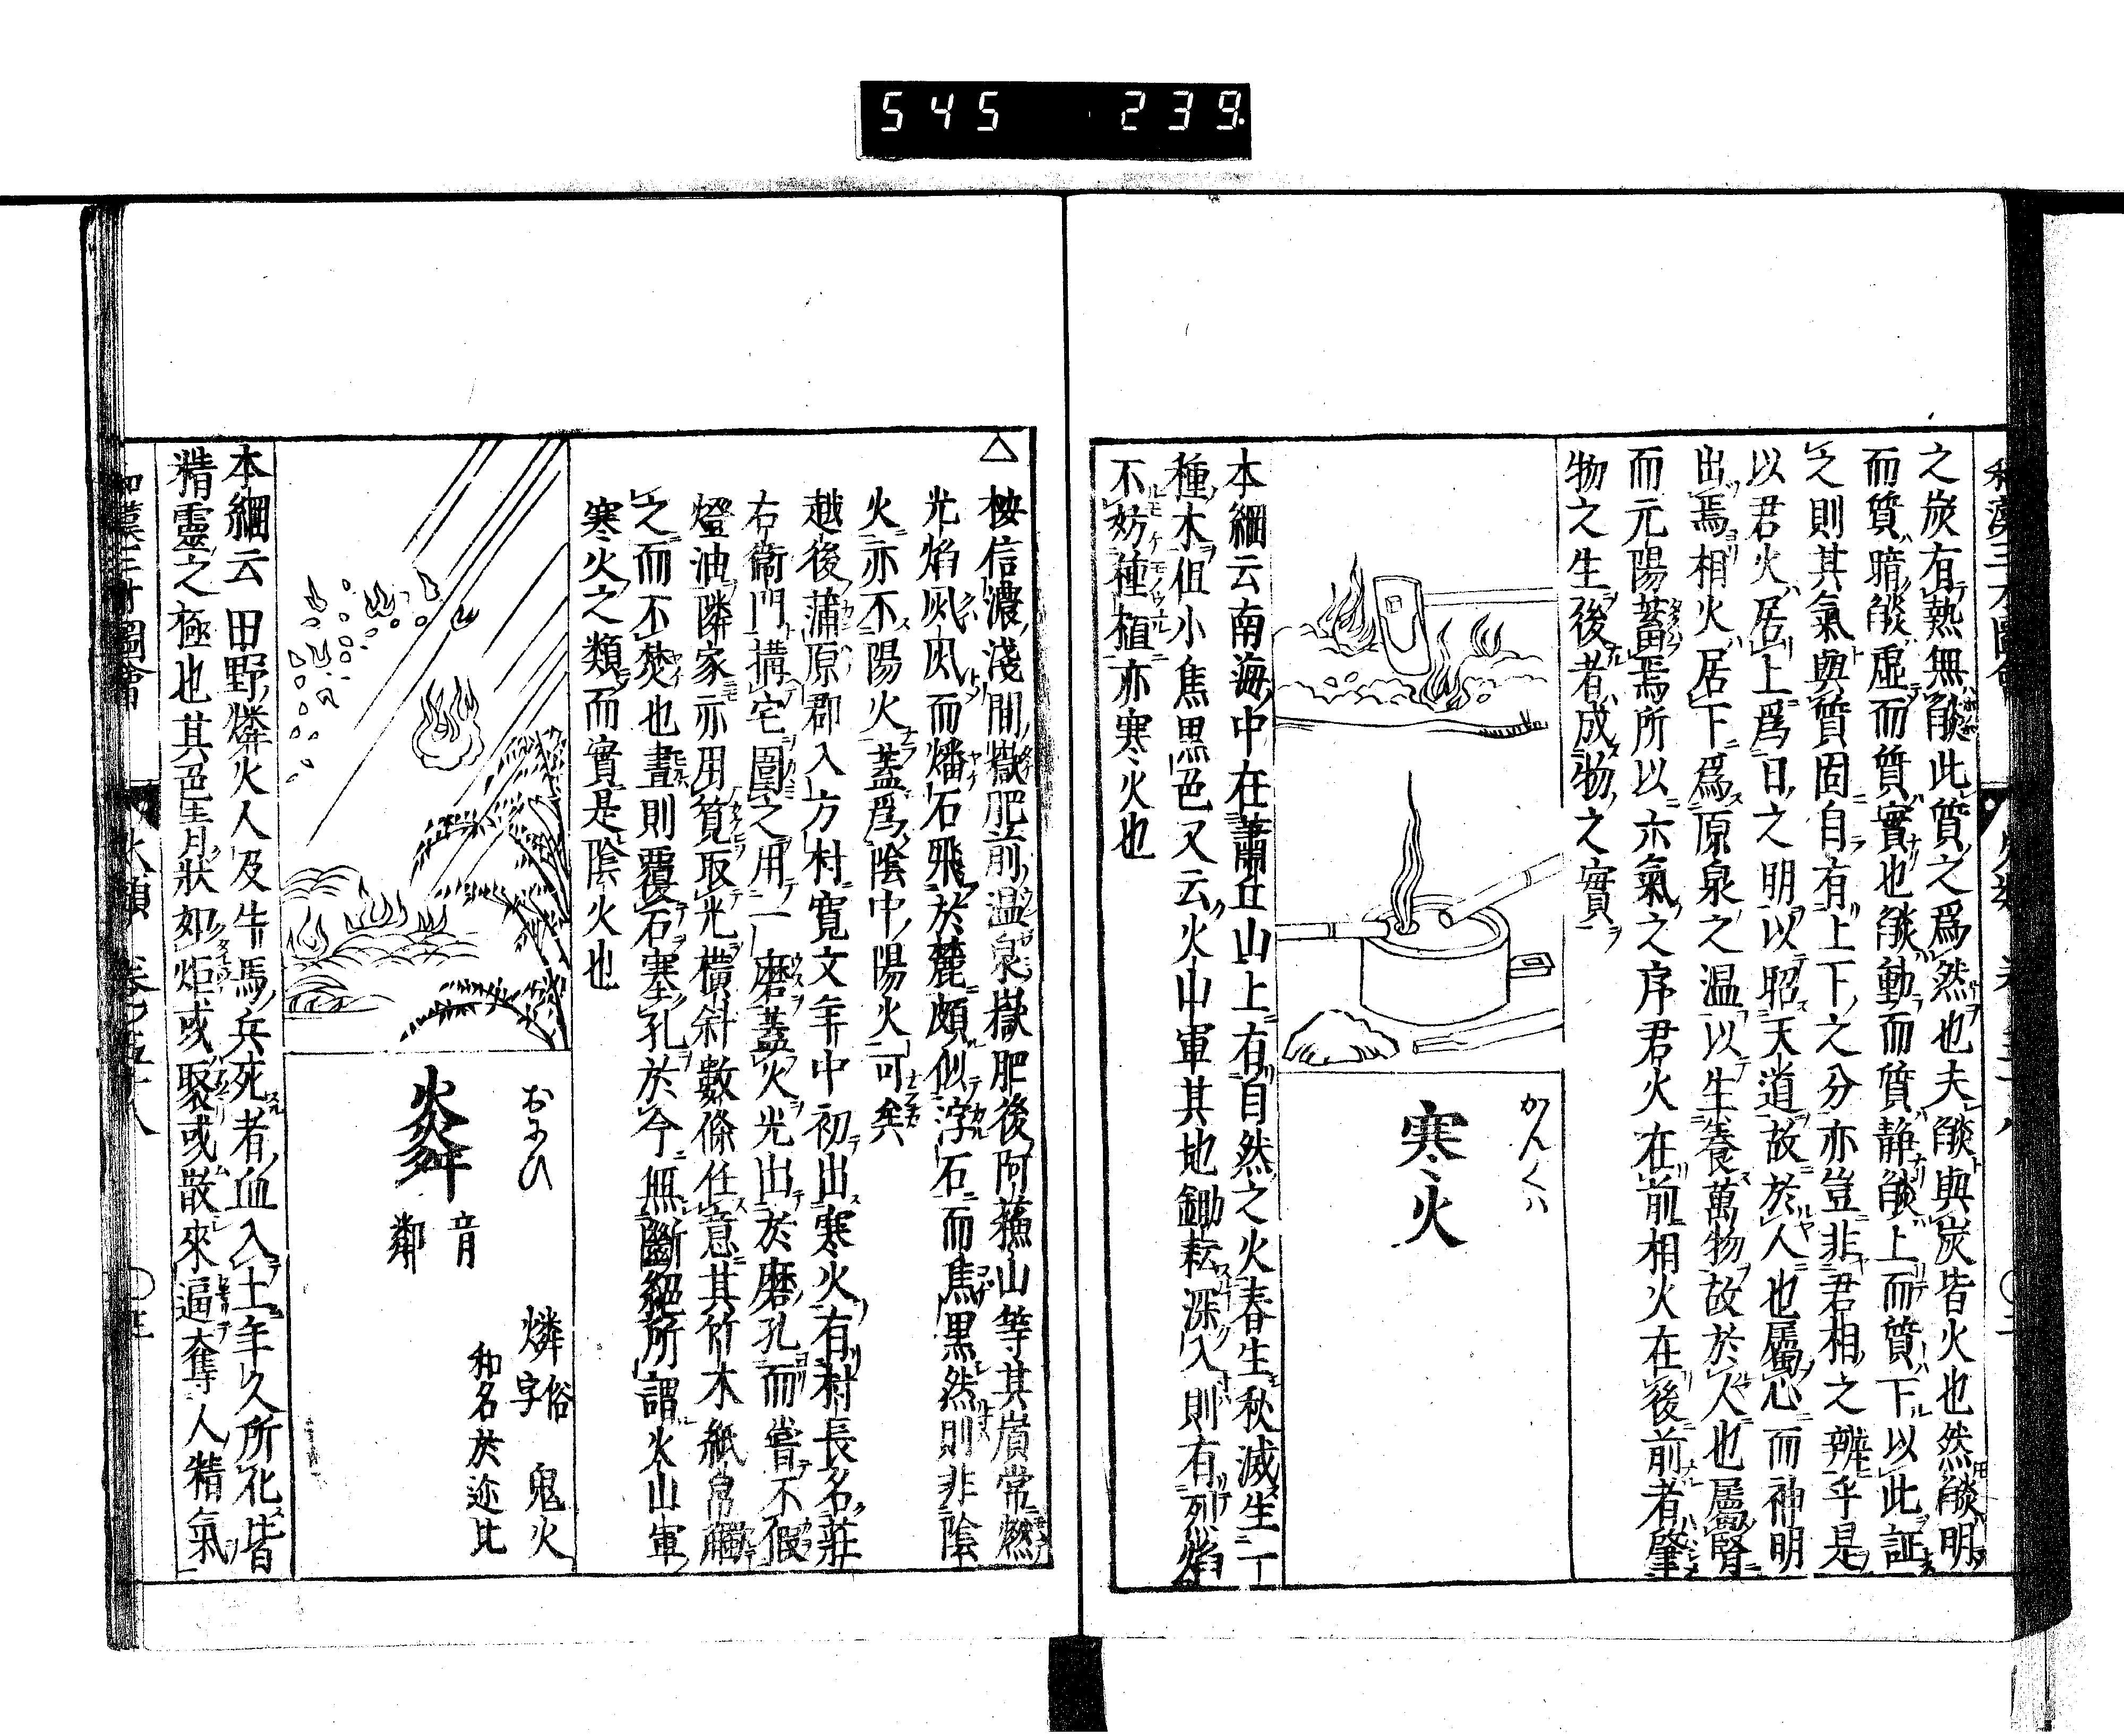 545 239
之炭有熱無燄此質之爲然也夫燄與炭皆火也然燄明
而質暗燄虛而質實也燄動而質静燄上而質下以此証
之則其氣與質固自有上下之分亦豈非君相之辨乎是
以君火居上爲日之明以昭天道故於人也屬心而神明
出焉相火居下爲原泉之温以生養萬物故於人也屬腎
而元陽蓄焉所以六氣之序君火在前相火在後前者肇
物之生後者成物之實
かんくハ
寒火
本綱云南海中在蕭丘山上有自然之火春生秋滅生一丁
種木但小焦黒色又云火山軍其地鋤耘深入則有烈焰
不妨種植亦寒火也
△按信濃淺間嶽肥前温泉嶽肥後阿蘓山等其嵿常燃
光焰而燔石飛於麓頗似浮石而焦黒然則非陰
火亦不陽火蓋爲陰中陽火可矣
越後蒲原郡入方村寛文年中初出寒火有村長名莊
右衞門搆宅圍之用一磨蓋火光出於磨孔而嘗不假
燈油隣家亦用筧取光横斜數條任意其竹木紙帛觸
之而不焚也晝則覆石塞孔於今無斷絕所謂火山軍
寒火之類而實是陰火也
おにひ
燐 俗字 鬼火
和名於迩比
音鄰
本綱云田野燐火人及牛馬兵死者血入土年久所化皆
精靈之極也其色青狀如炬或聚或散來逼奪人精氣